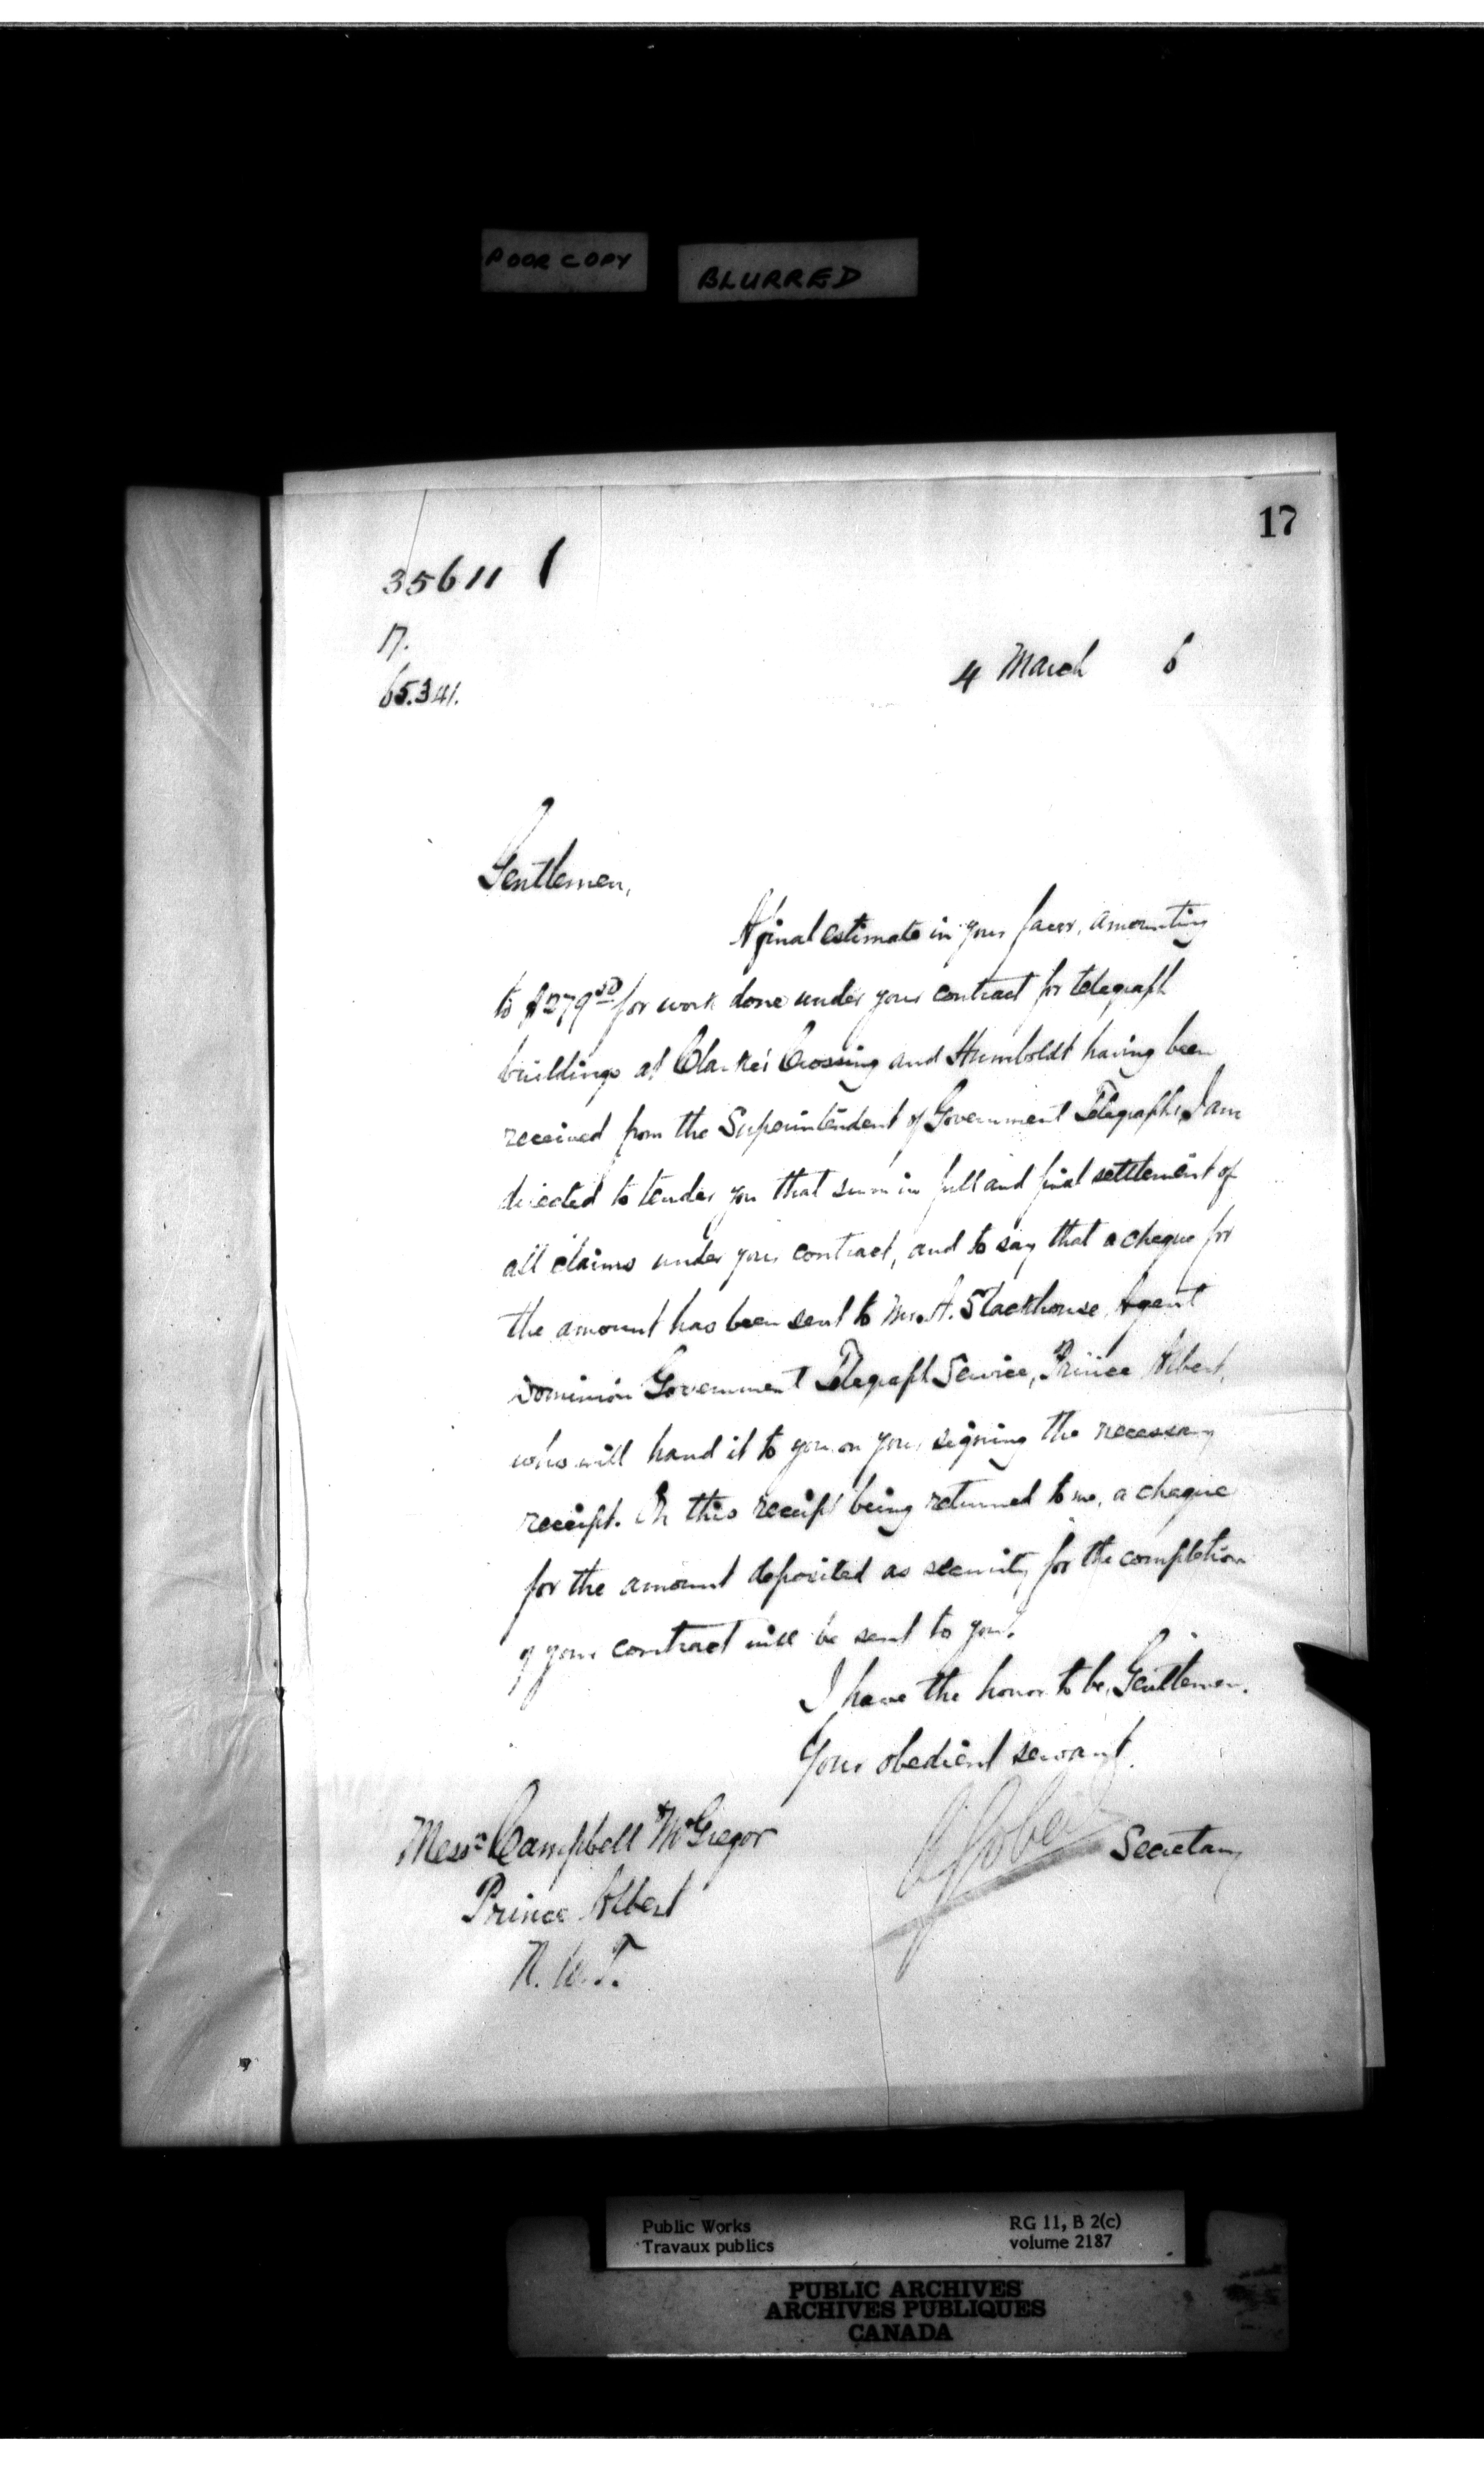 POOR COPY
BLURRED
17
35611
17.
65.341.
4 March 6
Gentlemen,
A final estimate in your favor, amounting
to $279.50 for work done under your contract for telegraph
buildings at Clarke's Crossing and Humboldt having been
received from the Superintendent of Government Telegraphs, I am
directed to tender you that sum in full and final settlement of
all claims under your contract, and to say that a cheque for
the amount has been sent to Mr. A. Stackhouse, Agent
Dominion Government Telegraph Service, Prince Albert,
who will hand it to you on your signing the necessary
receipt. On this receipt being returned to me, a cheque
for the amount deposited as security for the completion
of your contract will be sent to you.
I have the honor to be, Gentlemen,
Your obedient servant.
A Gobeil Secretary
Messrs Campbell & McGregor
Prince Albert
N. W. T.
Public Works
Travaux publics
RG 11, B 2(c)
volume 2187
PUBLIC ARCHIVES
ARCHIVES PUBLIQUES
CANADA